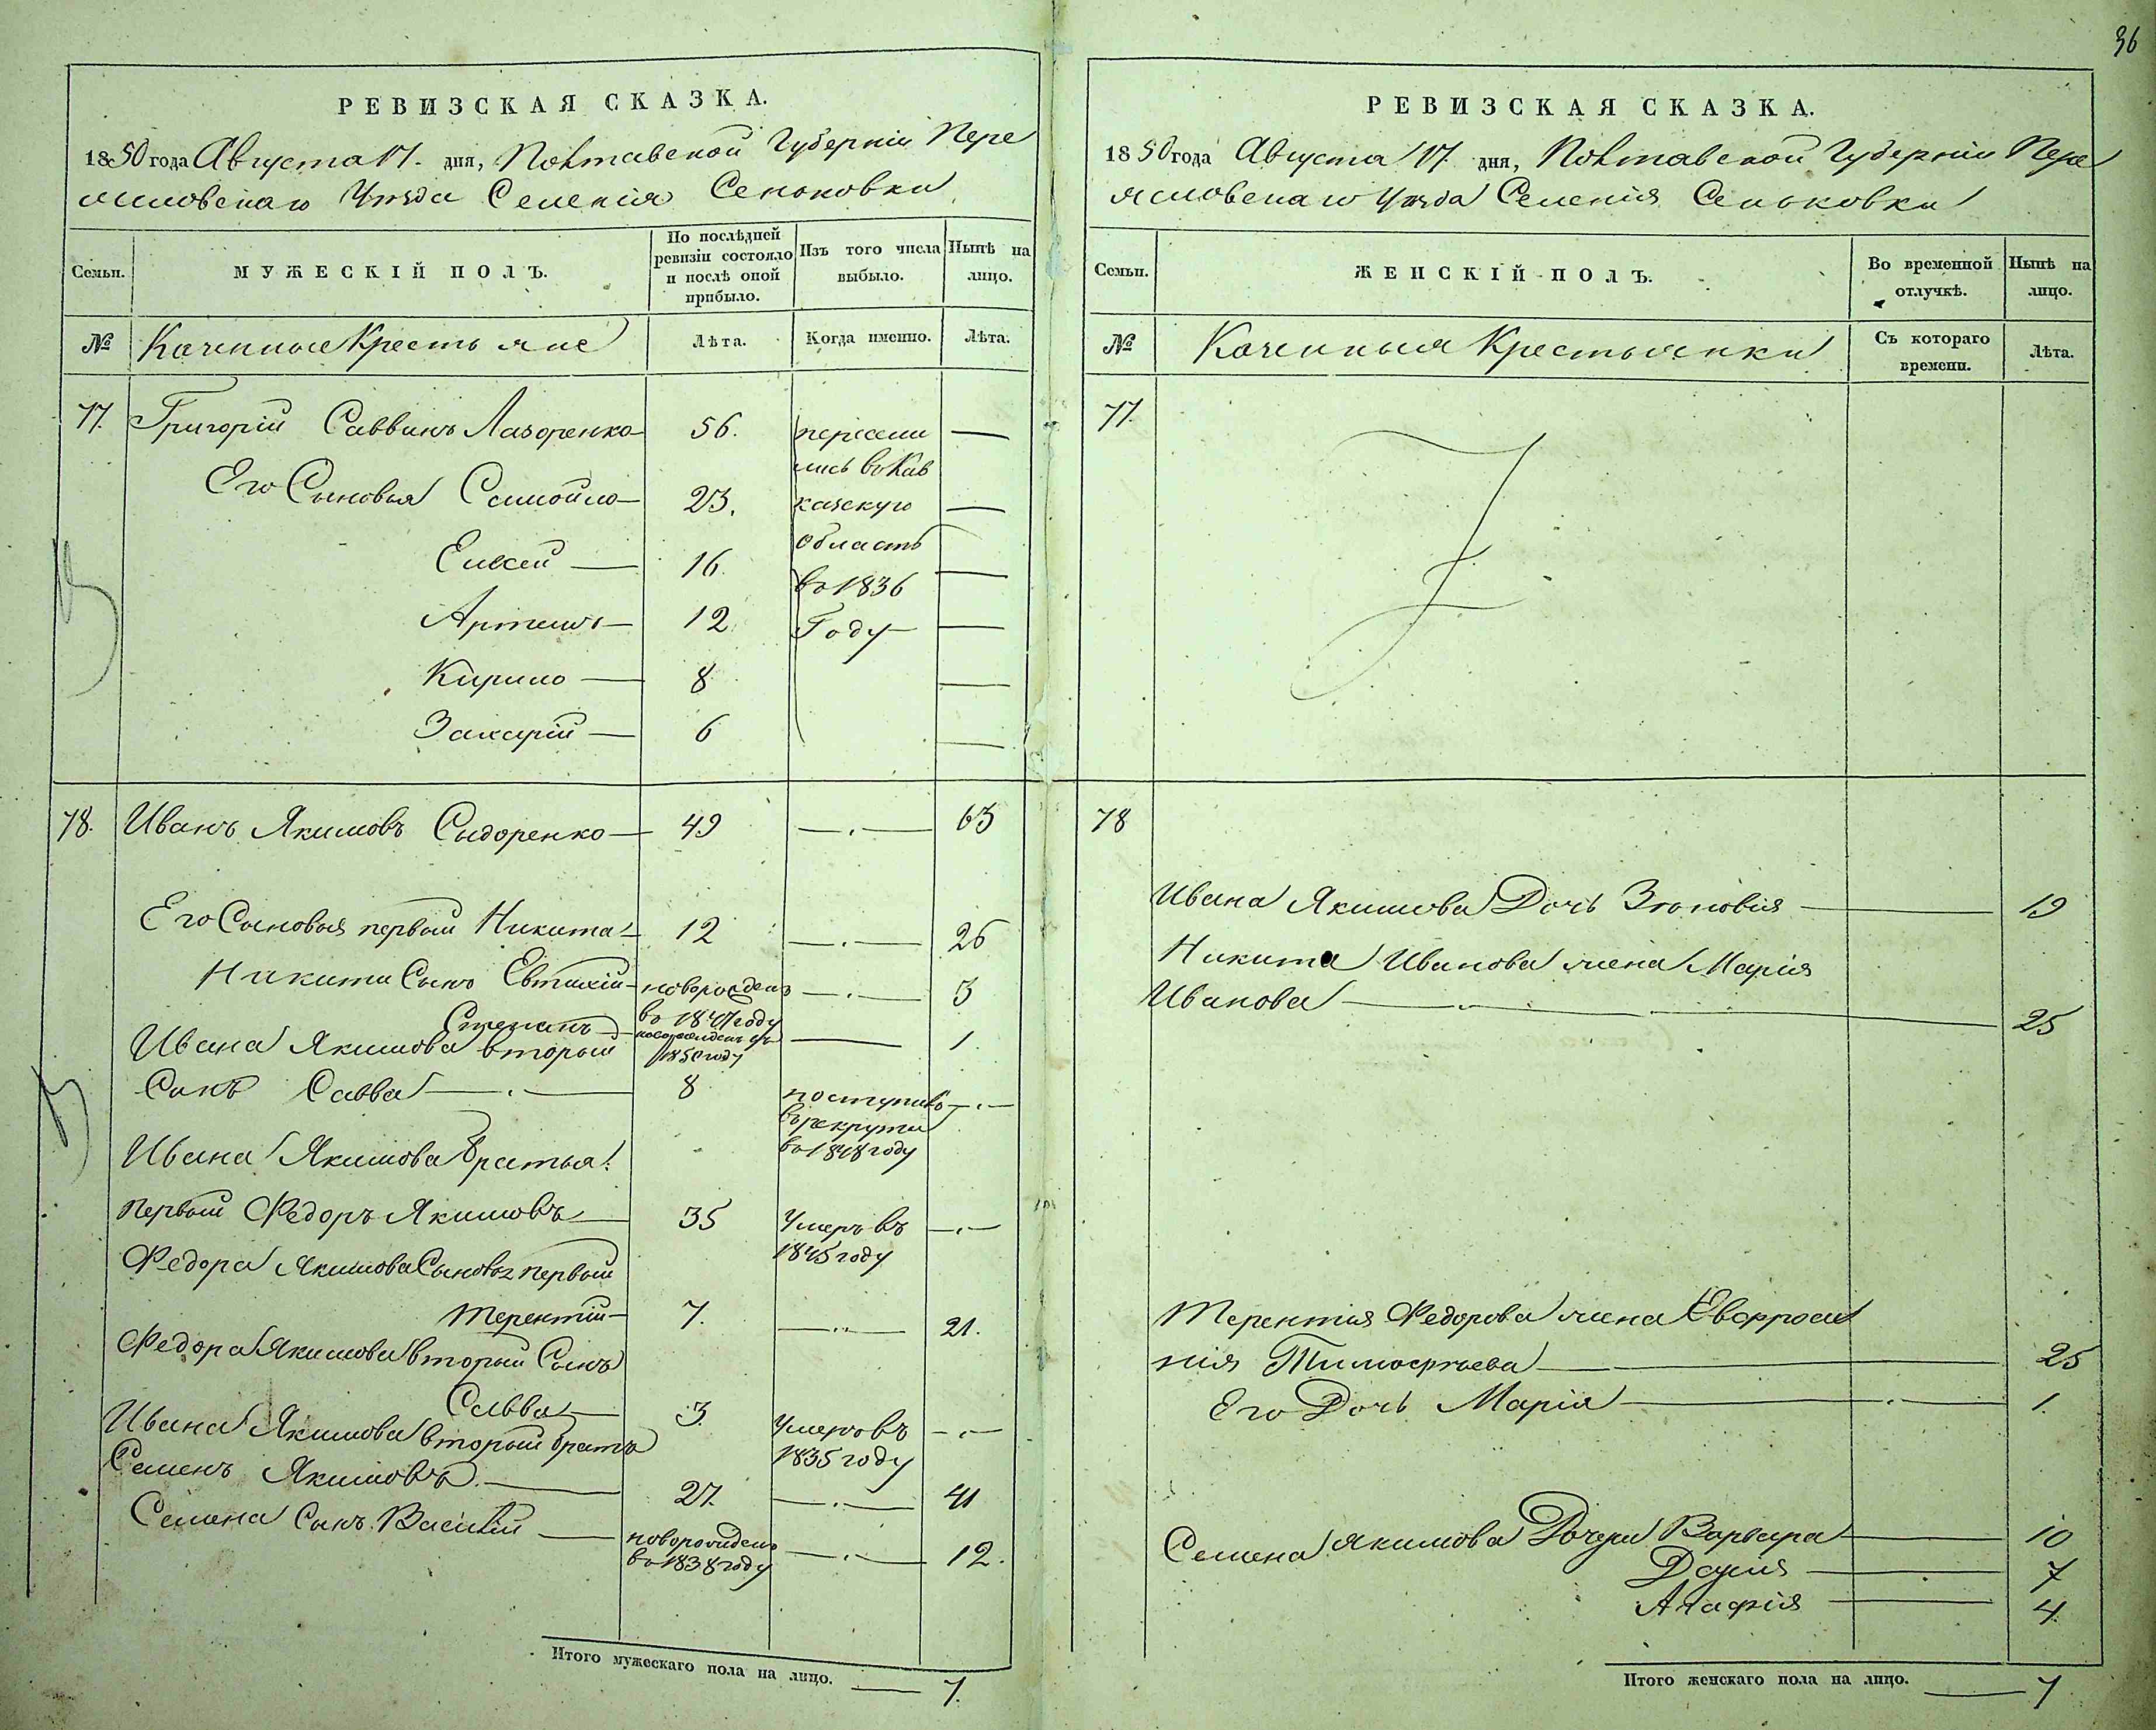 36
РЕВИЗСКАЯ СКАЗКА.
1850 года Августа 17. дня, Полтавской Губерніи Пере
яславскаго Уезда Селенія Сеньковки
Семьи.
МУЖЕСКІЙ ПОЛЪ.
По послѣдней ревизіи состояло и послѣ оной прибыло.
Изъ того числа выбыло.
Нынѣ на лицо.
№
Казенные Крестьяне
Лѣта.
Когда именно.
Лѣта.
77. Григорій Саввинъ Лазоренко 56. пересели —
лись въ Кав
Его Сыновья Самойло — 23. казскую —
область
Елисей — 16. въ 1836 —
Артемъ — 12 Году —
Кирило — 8 —
Захарій — 6 —
78. Иванъ Якимовъ Сыдоренко — 49 —.— 63
Его Сыновья первый Никита — 12 —.— 26
Никити Сынъ Евтихій — новорожденъ —.— 3
въ 1847 году
Степанъ — новорожденъ въ — 1
1850 году
Ивана Якимова вторый
Сынъ Савва —.— 8 поступилъ —.—
въ рекруты
въ 1848 году
Ивана Якимова братья:
первый Федоръ Якимовъ — 35 Умеръ въ —.—
1845 году
Федора Якимова Сыновья первый
Терентій — 7. —..— 21.
Федора Якимова вторый Сынъ
Савва — 3. Умеръ въ —.—
1835 году
Ивана Якимова вторый братъ
Семенъ Якимовъ — 27. —.— 41
Семена Сынъ Василій — новорожденъ —.— 12.
въ 1838 году
Итого мужескаго пола на лицо. — 7.
РЕВИЗСКАЯ СКАЗКА.
1850 года Августа 17. дня, Полтавской Губерніи Пере
яславскаго Уезда Селенія Сеньковки
Семьи.
ЖЕНСКІЙ ПОЛЪ.
Во временной отлучкѣ.
Нынѣ на лицо.
№
Казенныя Крестьянки
Съ котораго времени.
Лѣта.
77.
78
Ивана Якимова Дочь Зѣновія — 19
Никита Иванова жена Марія
Иванова — 25
Терентія Федорова жена Евфроси
нія Тимофѣева — 25
Его Дочь Марія — 1.
Семена Якимова Дочери Варвара — 10
Дарія — 7
Агафія — 4.
Итого женскаго пола на лицо. — 7